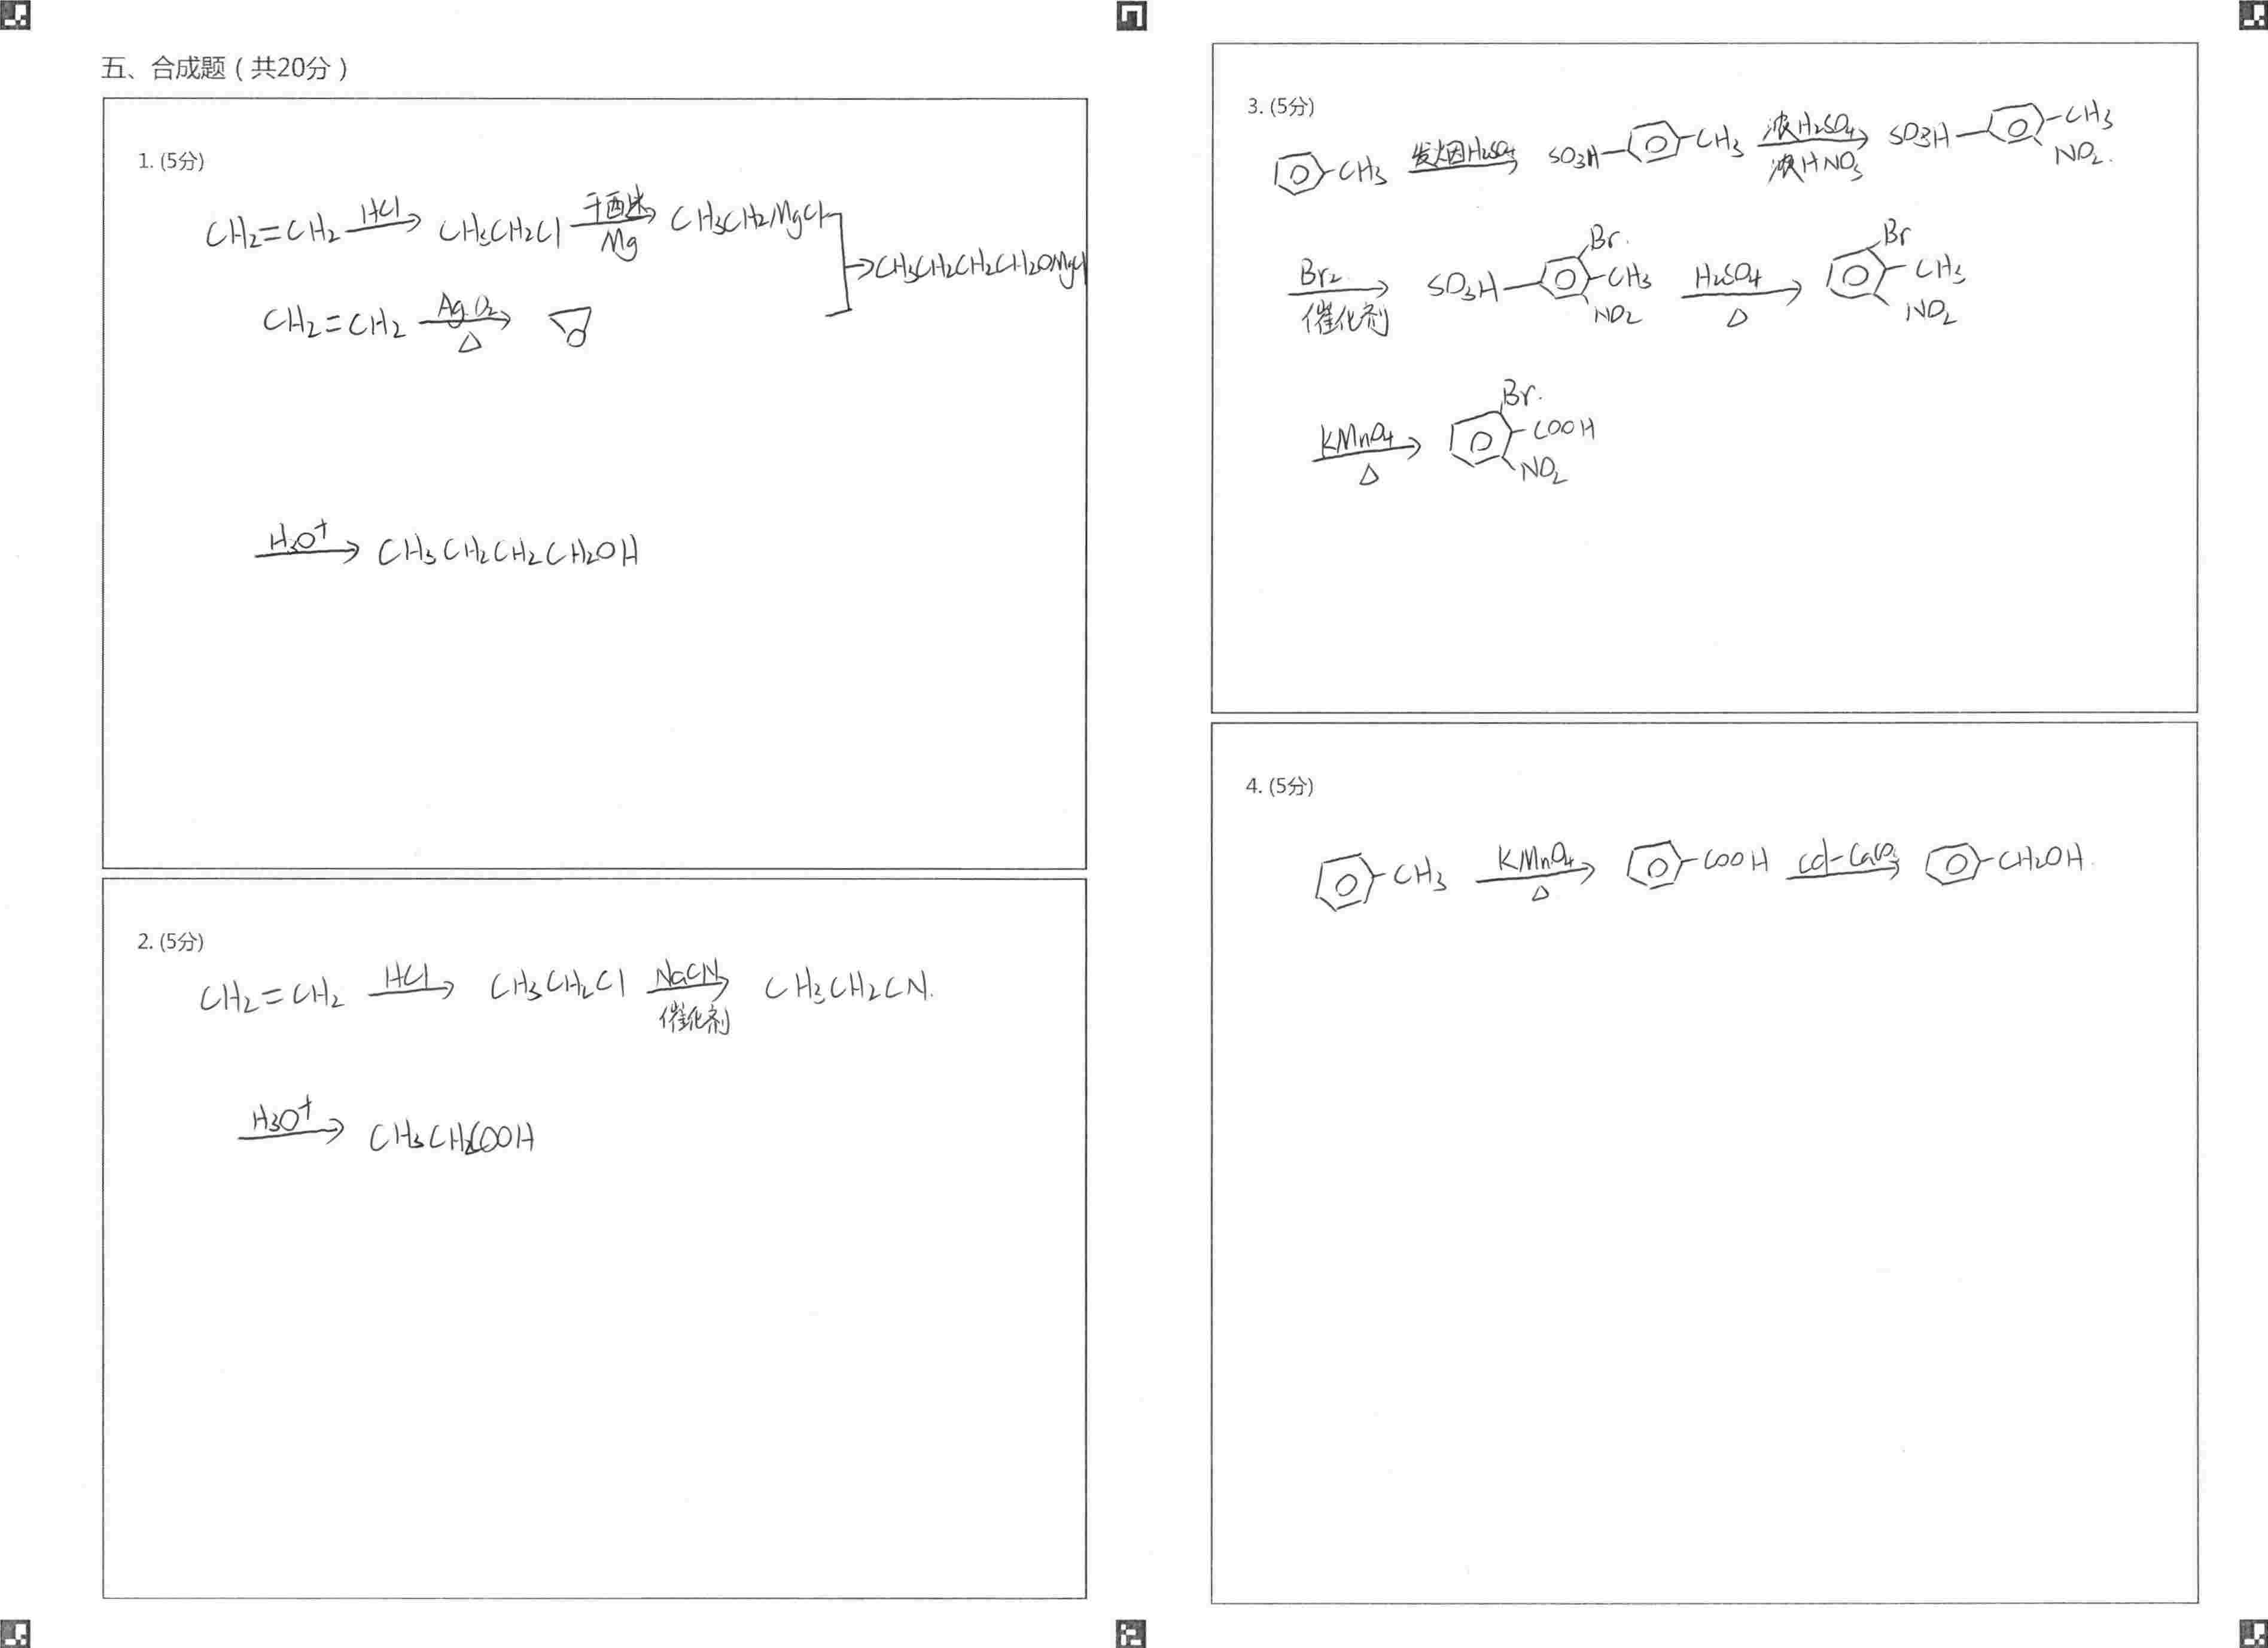 五、合成题（共20分）
1. (5分)
CH2=CH2 HCl→ CH3CH2Cl 干醚→ Mg CH3CH2MgCl
→CH3CH2CH2CH2OMgCl
CH2=CH2 Ag O2→ △ O
H3O+→ CH3CH2CH2CH2OH
2. (5分)
CH2=CH2 HCl→ CH3CH2Cl NaCN→ 催化剂 CH3CH2CN.
H3O+→ CH3CH2COOH
3. (5分)
CH3 发烟H2SO4→ SO3H CH3 浓H2SO4→ 浓HNO3 SO3H CH3 NO2.
Br2→ 催化剂 SO3H Br. CH3 NO2 H2SO4→ △ Br CH3 NO2
KMnO4→ △ Br. COOH NO2
4. (5分)
CH3 KMnO4→ △ COOH Cd-CaCO3→ CH2OH.